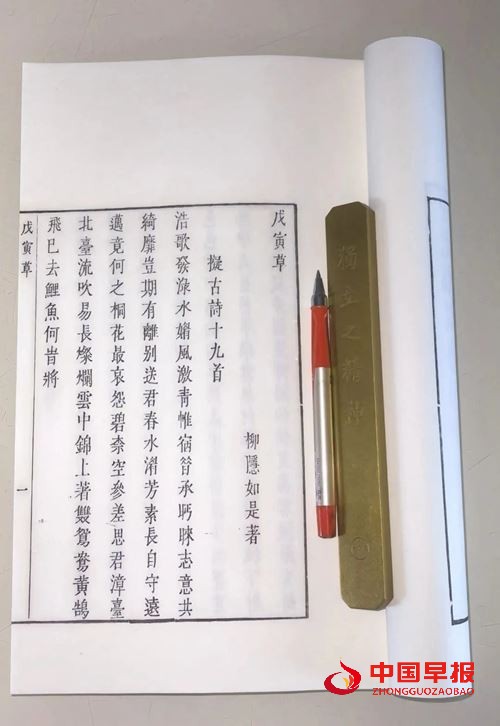 戊寅草
柳隱如是著
擬古詩十九首
浩歌發淥水風激青惟宿昔承眄睞志意共
綺靡豈期有離别送君春水芳素長自守遠
邁竟何之桐花最哀怨碧柰空參差思君漳臺
北臺流吹易長燦爛雲中錦上著雙鴛鴦黃鵠
飛已去鯉魚何旹將
戊寅草
一
獨立之精神
中国早报
ZHONGGUOZAOBAO